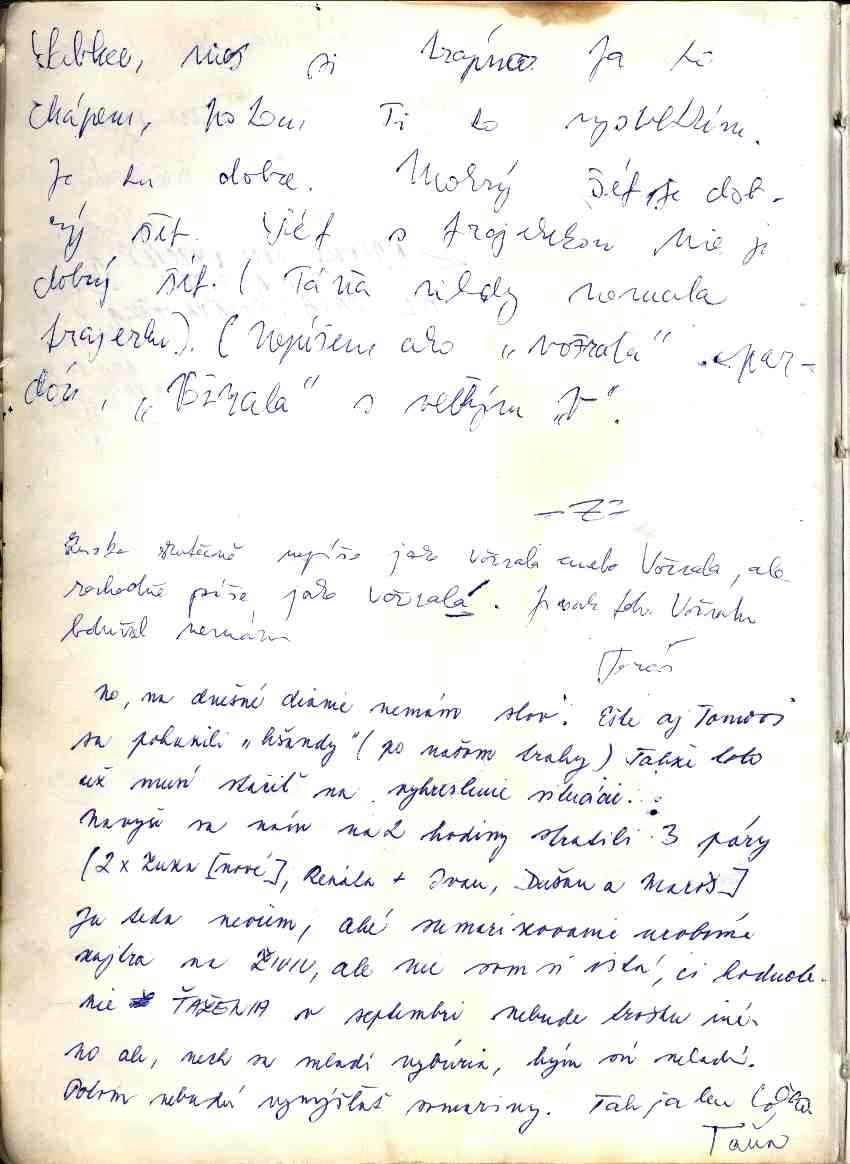 si trápna Ja to
chápem, potom Ti to vysvetlím.
Je tu dobre. Mokrý šéf je dob-
rý šéf. Šéf s frajerkou nie je
dobrý šéf. (Táňa nikdy nemala
frajerku). (Nepíšem ako „vožrala" par-
dón, „Vožrala" s veľkým „V".
Zuzka skutečně nepíše jako vožralá anebo Vožrala, ale
rozhodně píše jako vožralá. Jinak
bohužel nemám
No, na dnešné dianie nemám slov! Ešte aj
sa pohunili (po našom) Takže toto
už musí stačiť na vykreslenie situácie.
Navyše sa nám na 2 hodiny stratili 3 páry
(2 x Zuzka [nové], Renáta + Ivan, Dušan a Maroš]
Ja teda neviem, aké sumarizovanie urobíme
zajtra na ale nie som si istá, či hodnote-
nie ŤAŽENIA v septembri nebude trošku iné.
No ale, nech sa mladí vybúria, kým sú mladí.
Potom nebudú vymýšľať somariny. Tak ja len
Táňa